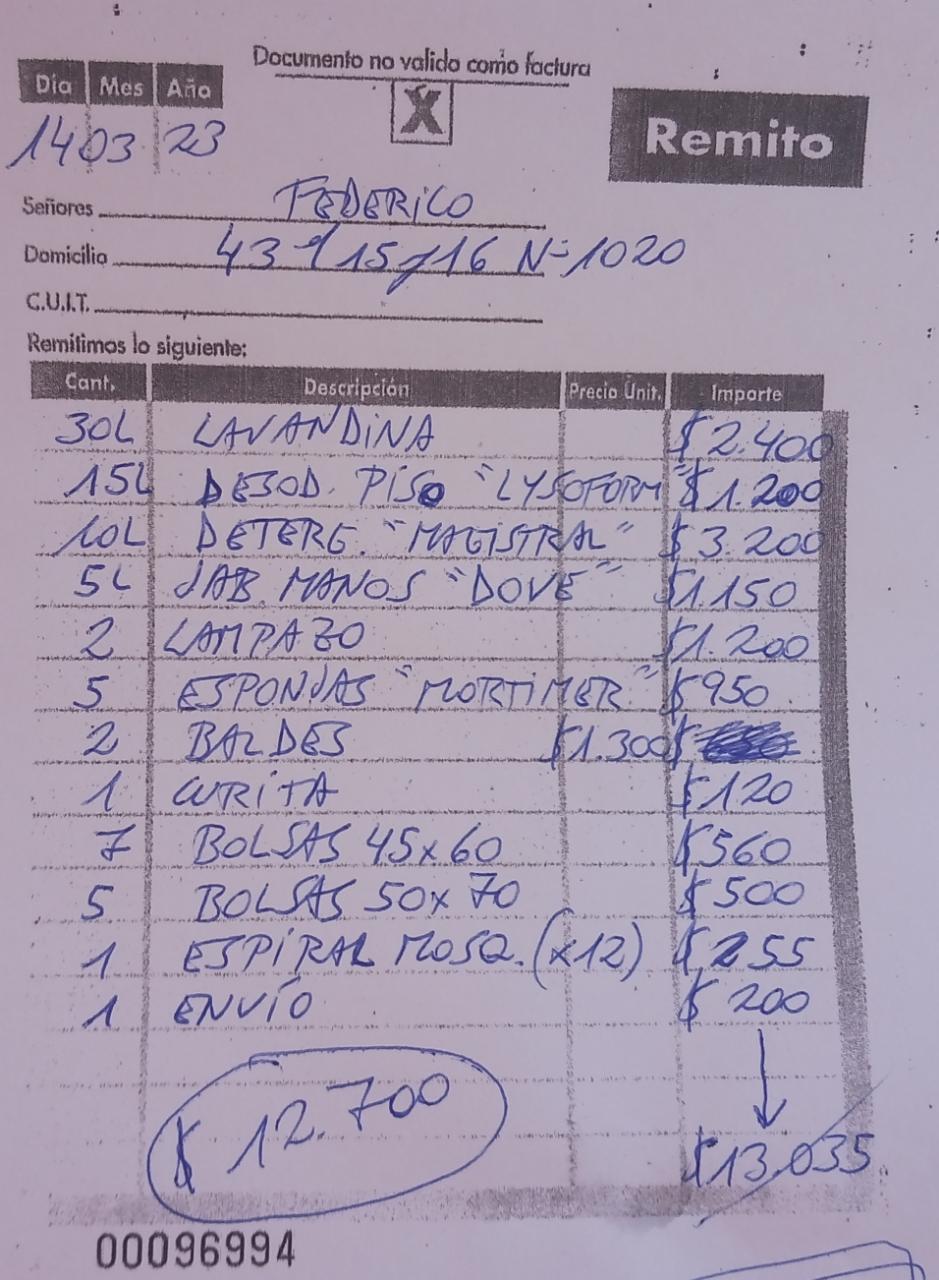 Documento no valido como factura
Día Mes Año
X
Remito
14 03 23
Señores FEDERICO
Domicilio 43 e/ 15 y 16 N= 1020
C.U.I.T.
Remitimos lo siguiente:
Cant. Descripción Precio Unit. Importe
30L LAVANDINA $2.400
15L DESOD. PISO "LYSOFORM" $1.200
10L DETERG. "MAGISTRAL" $3.200
5L JAB. MANOS "DOVE" $1.150
2 LAMPAZO $1.200
5 ESPONJAS "MORTIMER" $950
2 BALDES $1.300 $
1 CURITA $120
7 BOLSAS 45x60 $560
5 BOLSAS 50x70 $500
1 ESPIRAL MOSQ. (x12) $255
1 ENVÍO $200
$12.700
$13.035
00096994